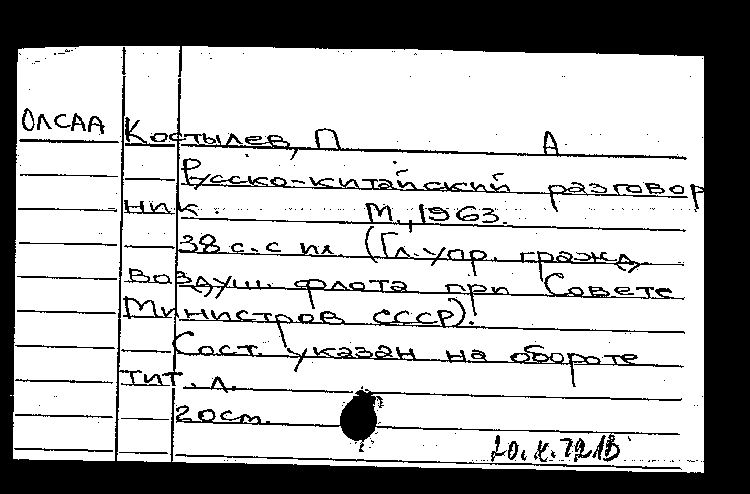 ОЛСАА Костылев, П А
Русско-китайский разговор
ник. М., 1963.
38 с. с ил. (Гл. упр. гражд.
воздуш. флота при Совете
Министров СССР).
Сост. указан на обороте
тит. л.
20 cm.
20.X.72